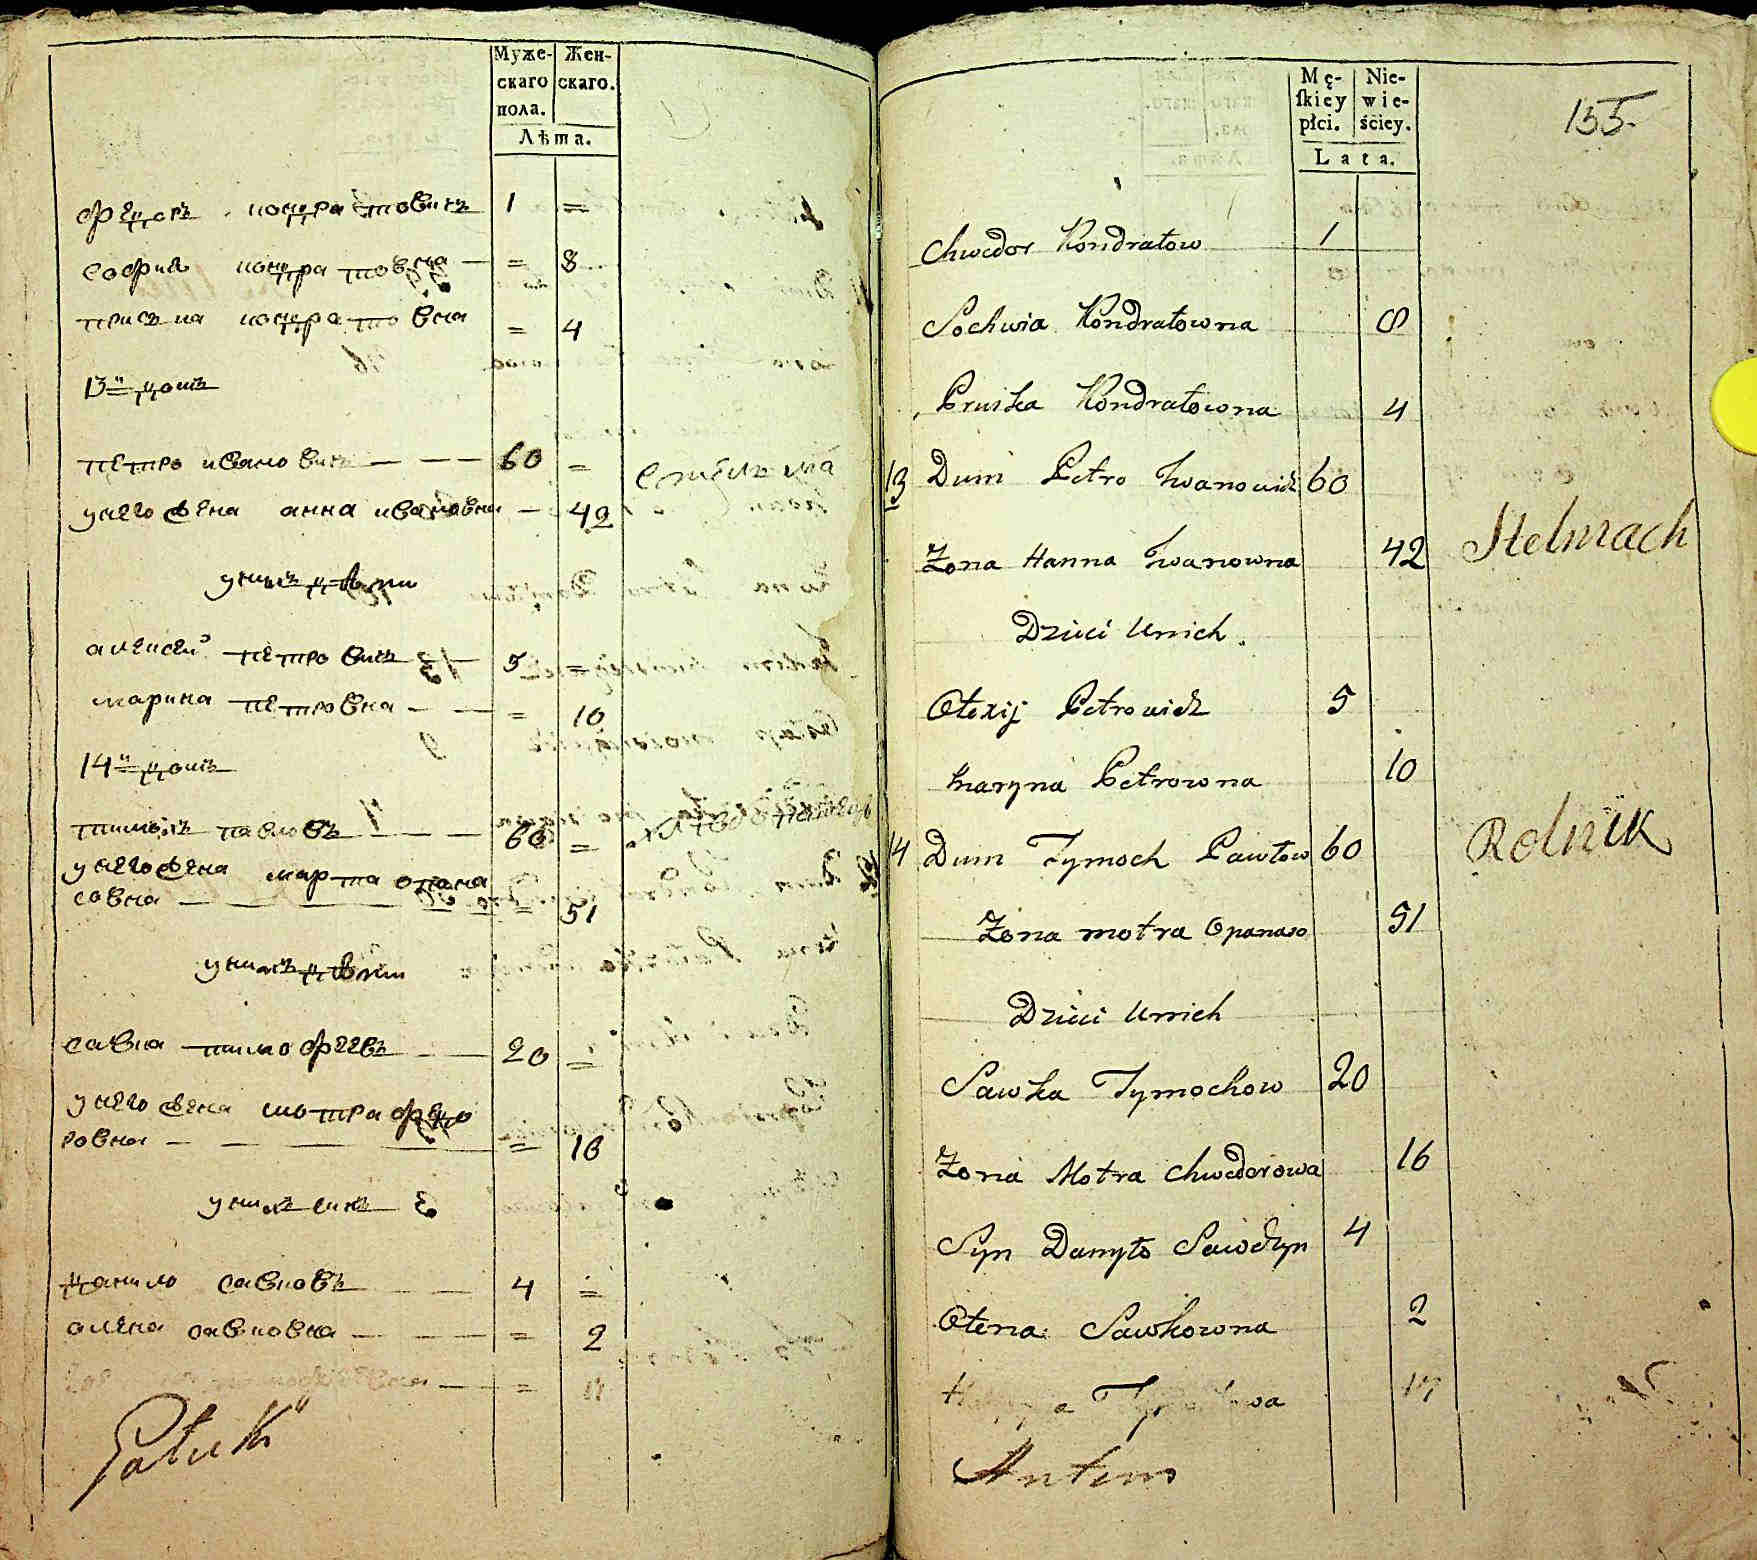 Муже-
скаго
пола.
Жен-
скаго.
Лѣта.
кондратовичъ 1 =
софия кондратовна — = 8
приська кондратовна = 4
13й домъ
петро ивановичъ — — — 60 =
унего жена анна ивановна — 42
стельма
унихъ дѣти
алексѣй петровичъ — 5 =
марина петровна — — = 10
14й домъ
тимохъ павловъ — — — 60 =
унего жена марта опана
совна — — — — = 51
унихъ дѣти
савка тимофѣевъ — — 20 =
унего жена мотра федо
ровна — — — — = 16
унихъ сынъ
данило савковъ — — 4 =
алена савковна — — — = 2
— =
Mę-
ſkiey
płci.
Nie-
wie-
ściey.
Lata.
155.
Chwedor Kondratow 1
Sochwia Kondratowna 8
Pruska Kondratowna 4
13 Dum Petro Iwanowicz 60
Żona Hanna Iwanowna 42 Stelmach
Dzieci Unich.
Olexij Petrowicz 5
Maryna Petrowna 10
14 Dum Tymoch Pawłow 60 Rolnik
Żona motra Opanaso 51
Dzieci Unich
Sawka Tymochow 20
Żona Motra Chwedorowa 16
Syn Danyło Sawczyn 4
Olena Sawkowna 2
17
Antem